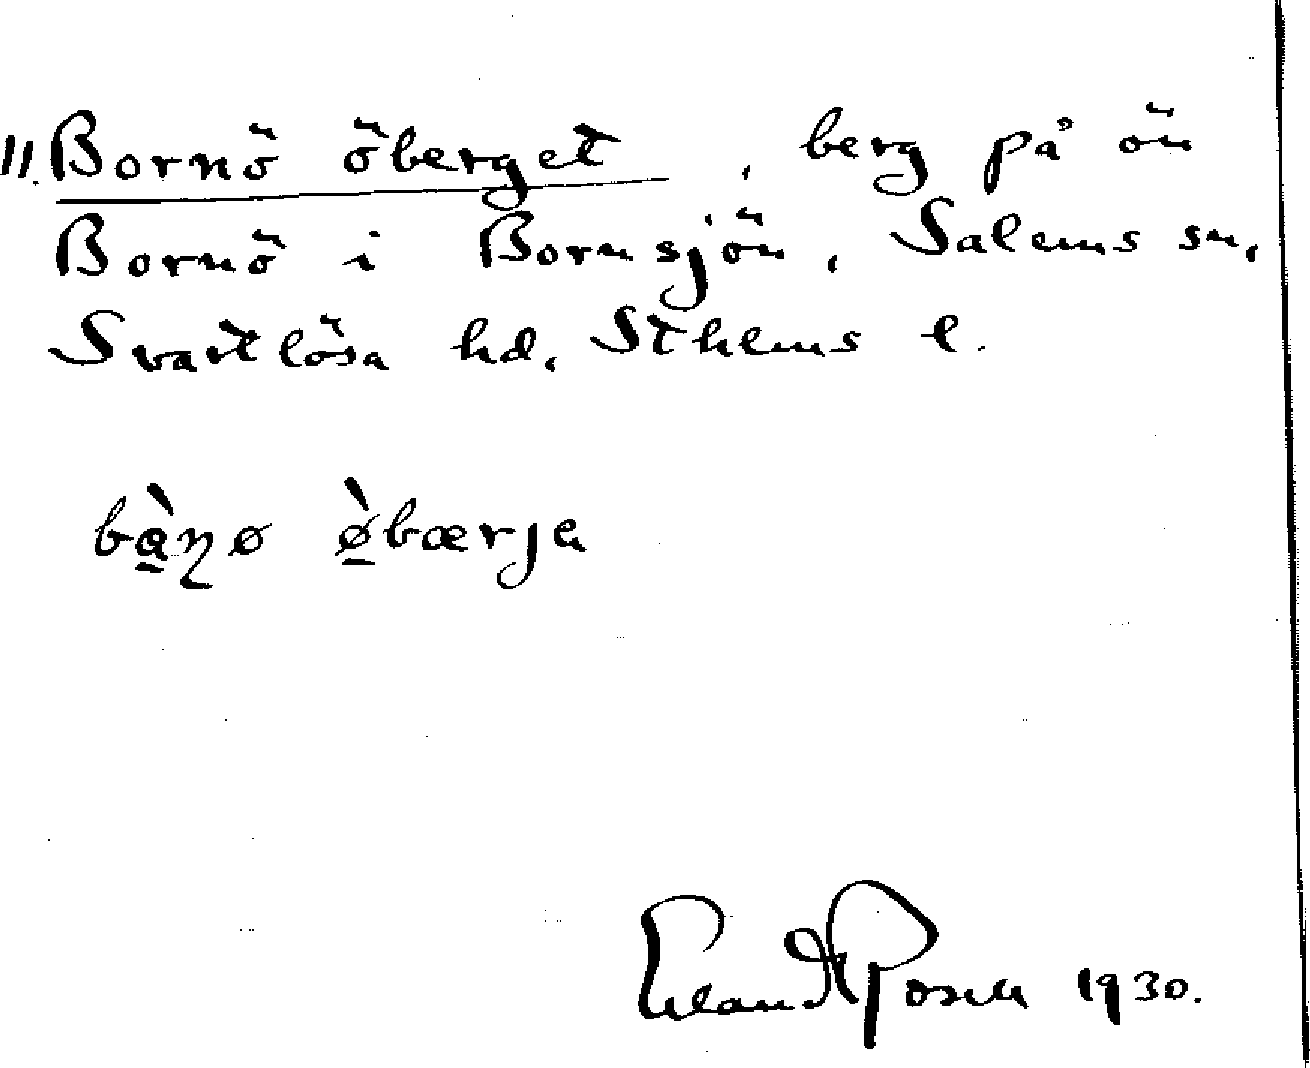 11. Bornö öberget, berg på ön
Bornö i Bornsjön, Salems sn,
Svartlösa hd, Sthlms l.
bą̀ɳø ø̠̀bærjɐ
Erland Rosell 1930.